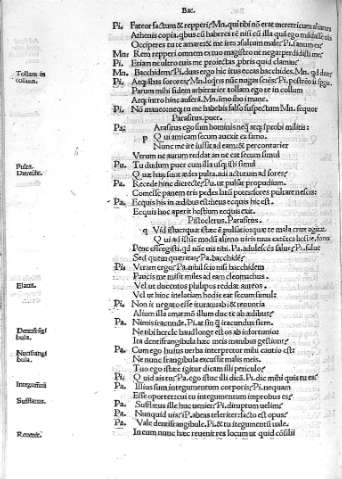 Bac.
Pi. Fateor factum & repperi. Mn. qui tibi nō erat meretricum aliarum
Athenis copia. qbus cū haberes rē nisi cū illa quā ego mādassē tibi
Occiperes tu te amare & mi ires cōsultum male. Pi. sanus es?
Mn. Rem repperi omnem ex tuo magistro ne negat perdidisti me
Pi. Etiam ne ultro tuis me prolectas pbris quid clamas
Tollam in collum.
Mn. Bacchidem. Pi. duas ergo hic intus eccas bacchides. Mn. qd duæ
Pi. Atq; ābas sorores. Mn. loqris nūc nugas sciēs. Pi. postrēo si pgis
Parum mihi fidem arbitrarier tollam ego te in collum
Atq; intro hinc auferā. Mn. imo ibo mane.
Pi. Nō maneo neq; tu me habebis falso suspectum Mn. sequor
Parasitus. puer.
Pa. Parasitus ego sum hominis neq atq; probi militis
qui amicam secum auexit ex samo.
Nunc me ire iussit ad eam & percontarier
Verum ne aurum reddat an ne eat secum simul
Pulta. Dierecte.
Pa. Tu dudum puer cum illa usq; isti simul
Quæ harum sunt ædes pulta. adi actutum ad fores
Pa. Recede hinc dierecte. ut pulsat propudium.
Comesse panem tris pedes latū potes fores pultare nescis
Pa. Ecquis his in ædibus est heus ecquis hic est.
Ecquis hoc aperit hostium ecquis exit.
Pistoclerus. Parasitus.
Quid istuc quæ istæc ē pulsatio quæ te mala crux agitat
Qui ad istūc modū alieno uiris tuas extētes hostio. fores
Pene effregisti. qd nūc uis tibi. Pa. adulescēs salue. Pi. salue
Sed quem quæritas Pa. bacchidē
Pi. Utram ergo Pa. nihil scio nisi bacchidem
Paucis me misit miles ad eam cleomachus.
Elatia.
Vel ut ducentos philipos reddat aureos
Vel ut hinc in elatiam hodie eat secum simul
Pi. Non it negato esse ituram abi & renuncia
Alium illa amat nō illum duc te ab ædibus
Pa. Nimis iracunde. Pi. at scin q̄ iracundus siem.
Dentifrāgibula.
Ne tibi hercle haud longe est os ab infortunio
Ita dentifrangibula hæc meis manibus gestiunt
Nucifrangibula.
Pa. Cum ego huius uerba interpretor mihi cautio est
Ne nucifrangibula excussit malis meis.
Tuo ego istæc igitur dicam illi periculo
Pi. Quid ais tu Pa. ego istuc illi dicā. Pi. dic mihi quis tu es
Integumētū
Pa. Illius sum integumentum corporis Pi. nequam
Esse oportet cui tu integumentum improbus es
Sufflatus.
Pa. Sufflatus ille huc ueniet. Pi. diruptum uelim
Pa. Nunquid uis Pi. abeas celeriter facto est opus
Pa. Vale dentifrangibule. Pi. & tu integumētū uale.
Reuenit.
In eum nunc hæc reuenit res locum ut quid cōsilii